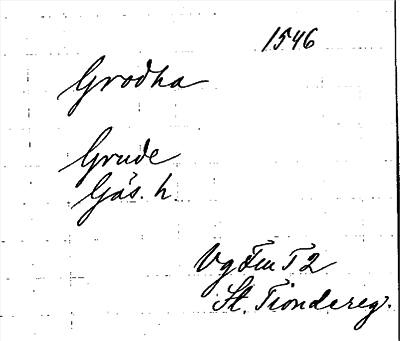 1546
Grodha
Grude
Gäs. h
Vg Fm T 2
St. Tiondereg.